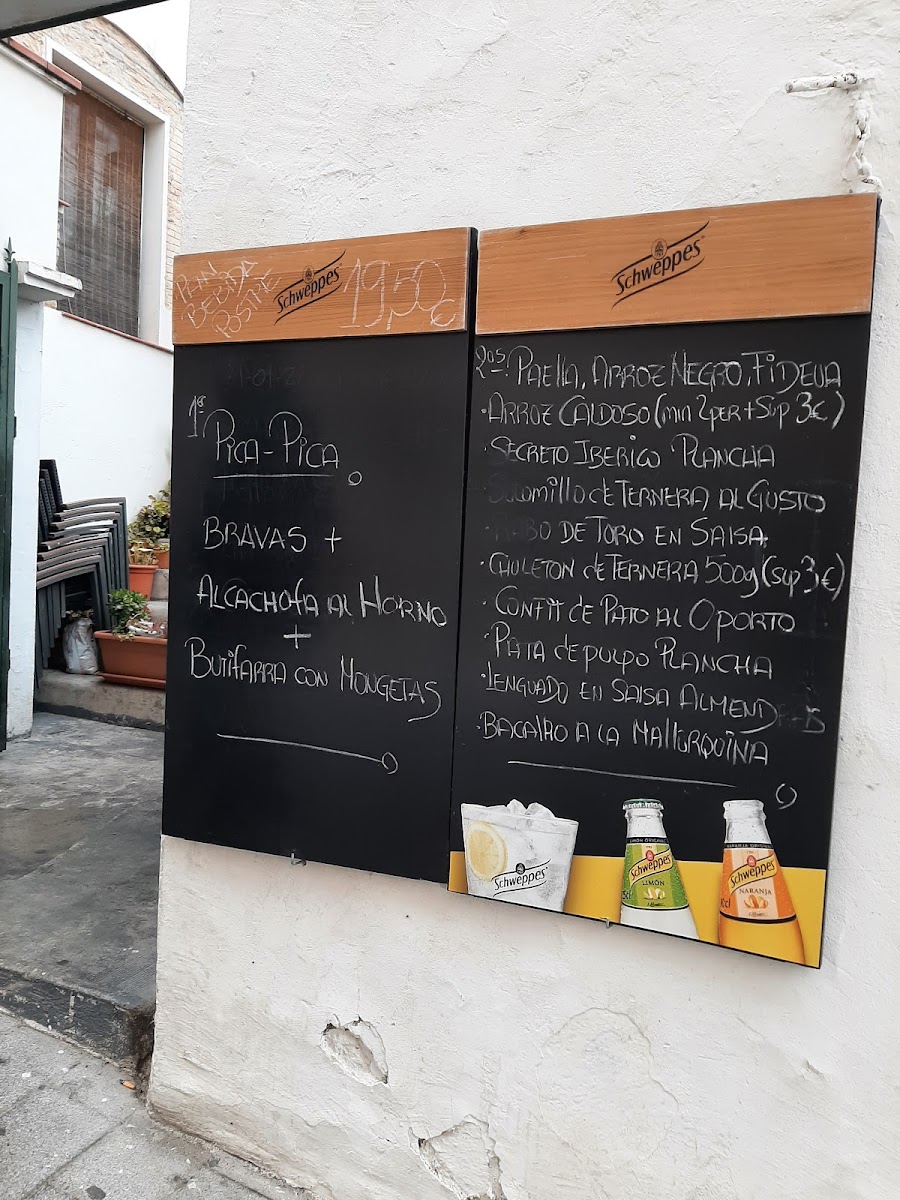 PAN
BEBIDA
POSTRE
Schweppes
19,50€
1er
PICA-PICA
BRAVAS +
ALCACHOFA AL HORNO
+
BUTIFARRA CON MONGETAS
Schweppes
2os PAELLA, ARROZ NEGRO, FIDEUA
·ARROZ CALDOSO (min 2per + Sup 3€)
·SECRETO IBERICO PLANCHA
·SOLOMILLO de TERNERA AL GUSTO
·RABO DE TORO EN SALSA
·CHULETON de TERNERA 500g (sup 3€)
·CONFIT de PATO AL OPORTO
·PATA de PULPO PLANCHA
·LENGUADO EN SALSA ALMENDRAS
·BACALHO A LA MALLORQUINA
Schweppes
Schweppes
LIMÓN
Schweppes
NARANJA